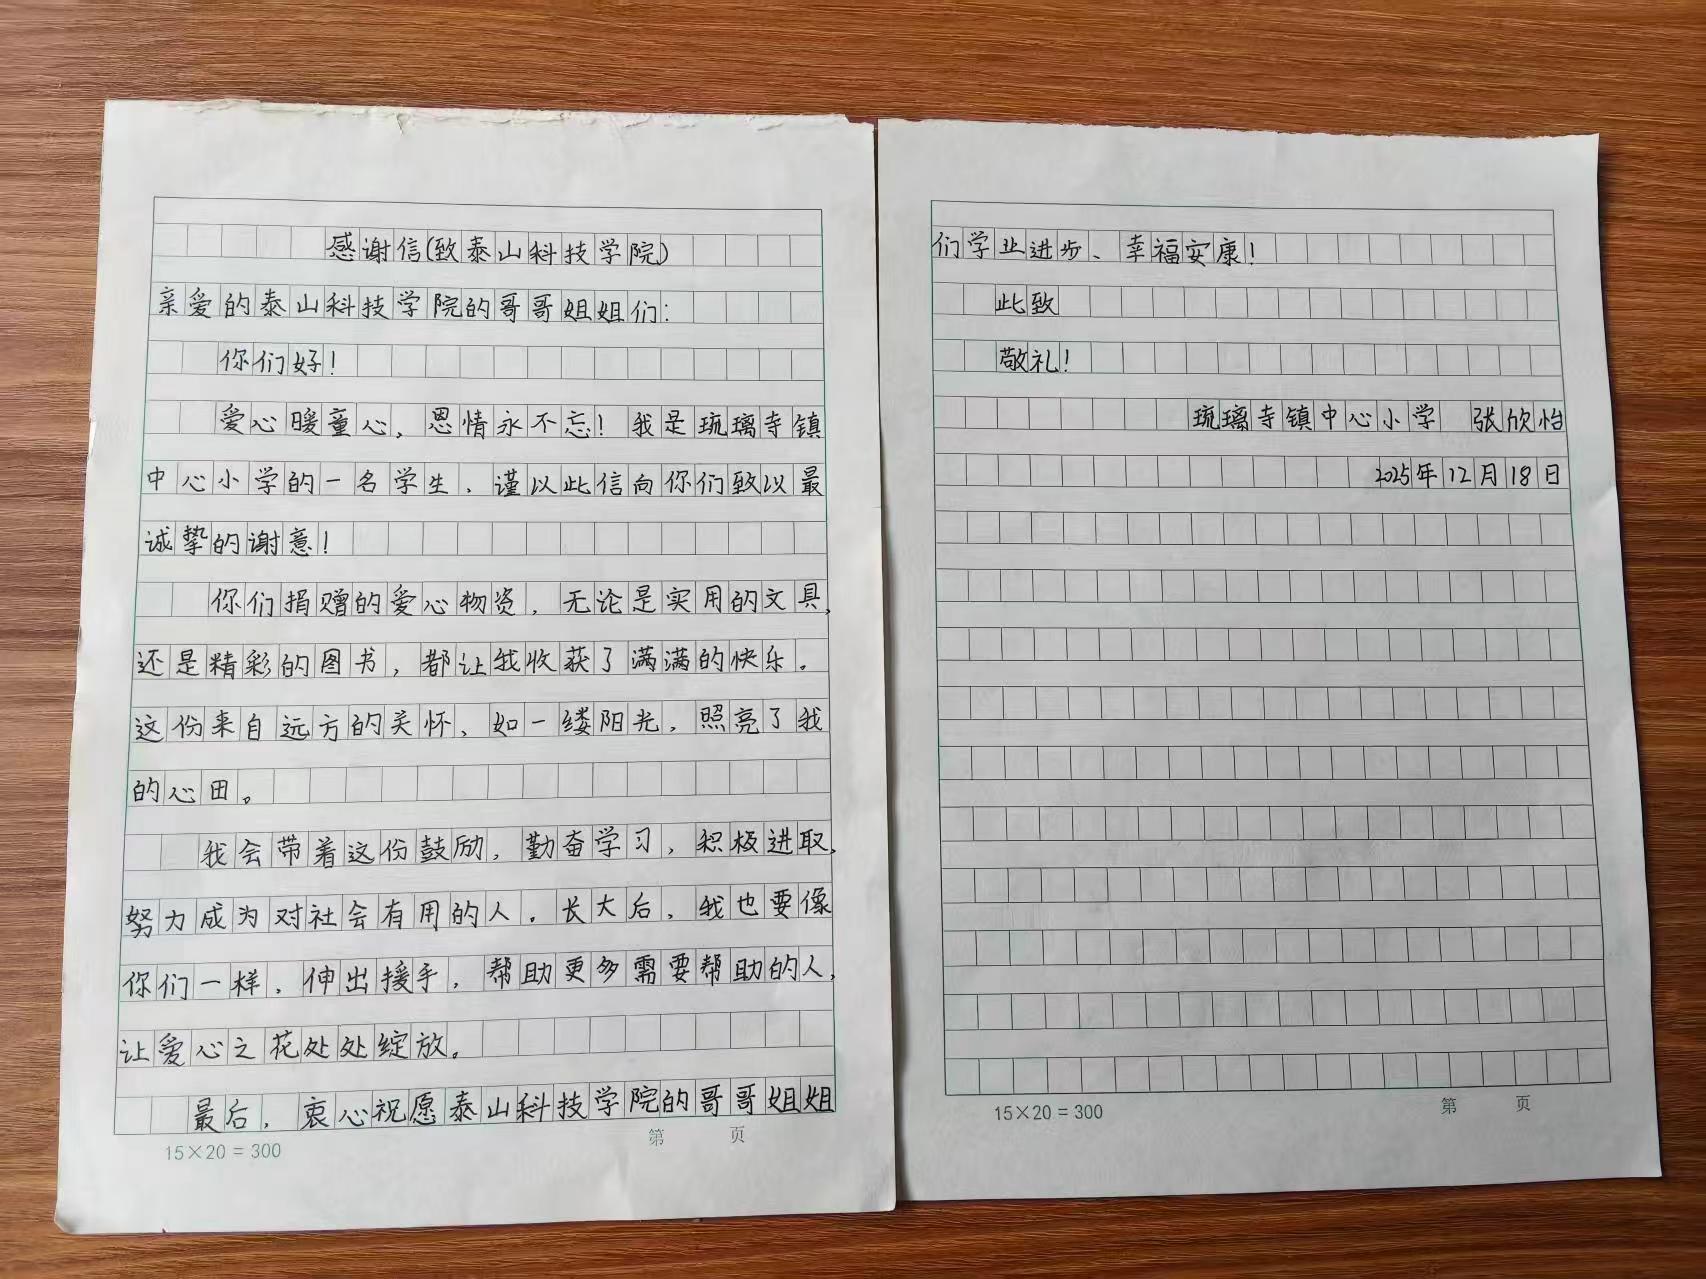 感谢信(致泰山科技学院)
亲爱的泰山科技学院的哥哥姐姐们：
你们好！
爱心暖童心，恩情永不忘！我是琉璃寺镇
中心小学的一名学生，谨以此信向你们致以最
诚挚的谢意！
你们捐赠的爱心物资，无论是实用的文具，
还是精彩的图书，都让我收获了满满的快乐。
这份来自远方的关怀，如一缕阳光，照亮了我
的心田。
我会带着这份鼓励，勤奋学习，积极进取，
努力成为对社会有用的人。长大后，我也要像
你们一样，伸出援手，帮助更多需要帮助的人，
让爱心之花处处绽放。
最后，衷心祝愿泰山科技学院的哥哥姐姐
15×20=300
第 页
们学业进步、幸福安康！
此致
敬礼！
琉璃寺镇中心小学 张欣怡
2025年12月18日
15×20=300
第 页